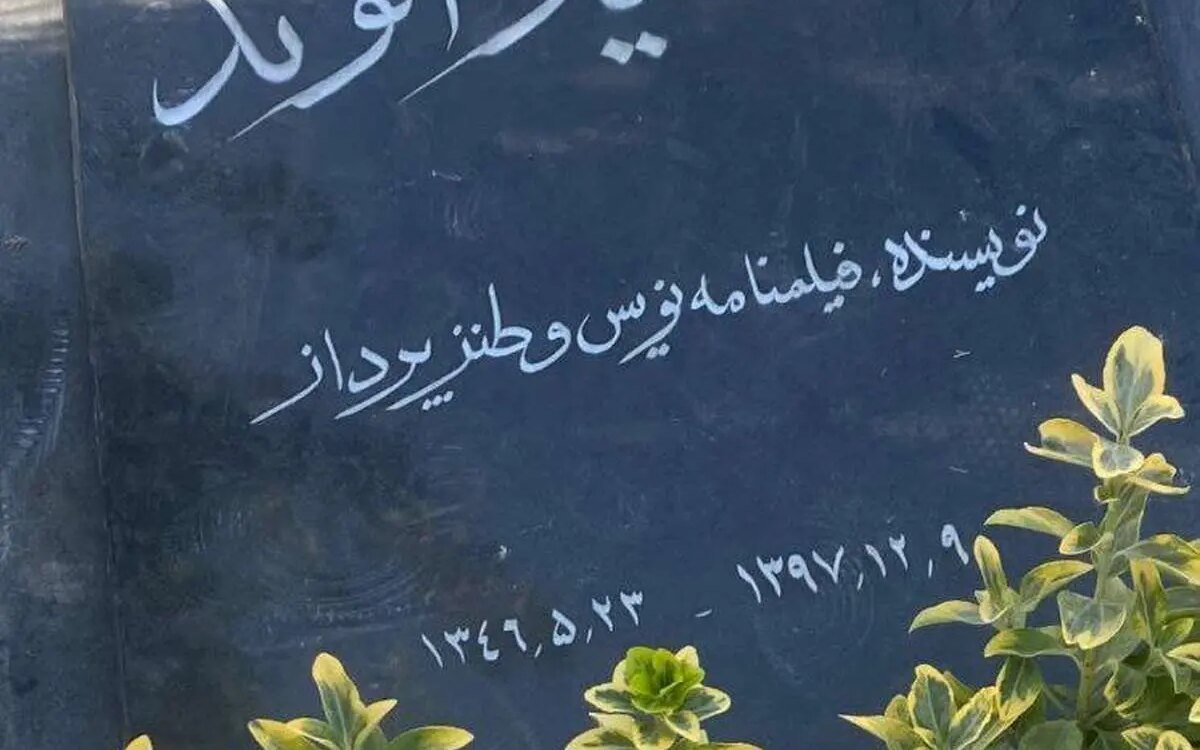 نویسنده، فیلمنامه نویس و طنزپرداز
۱۳۴۶٫۵٫۲۳ - ۱۳۹۷٫۱۲٫۹